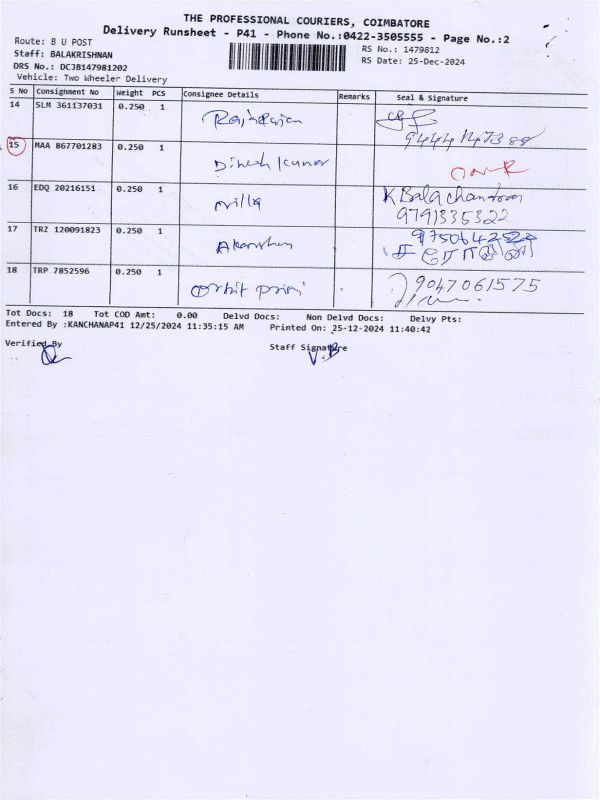 THE PROFESSIONAL COURIERS, COIMBATORE
Delivery Runsheet - P41 - Phone No.:0422-3505555 - Page No.:2
Route: B U POST
RS No.: 1479812
Staff: BALAKRISHNAN
RS Date: 25-Dec-2024
DRS No.: DCJB147981202
Vehicle: Two Wheeler Delivery
S No Consignment No Weight PCS Consignee Details Remarks Seal & Signature
14 SLM 361137031 0.250 1 Rajarajan
15 MAA 867701283 0.250 1 Dinesh kumar
16 EDQ 20216151 0.250 1 K Balachander
9791335322
17 TRZ 120091823 0.250 1
சரோஜினி
18 TRP 7852596 0.250 1 9047061575
Tot Docs: 18 Tot COD Amt: 0.00 Delvd Docs: Non Delvd Docs: Delvy Pts:
Entered By :KANCHANAP41 12/25/2024 11:35:15 AM Printed On: 25-12-2024 11:40:42
Verified By
Staff Signature
V.B